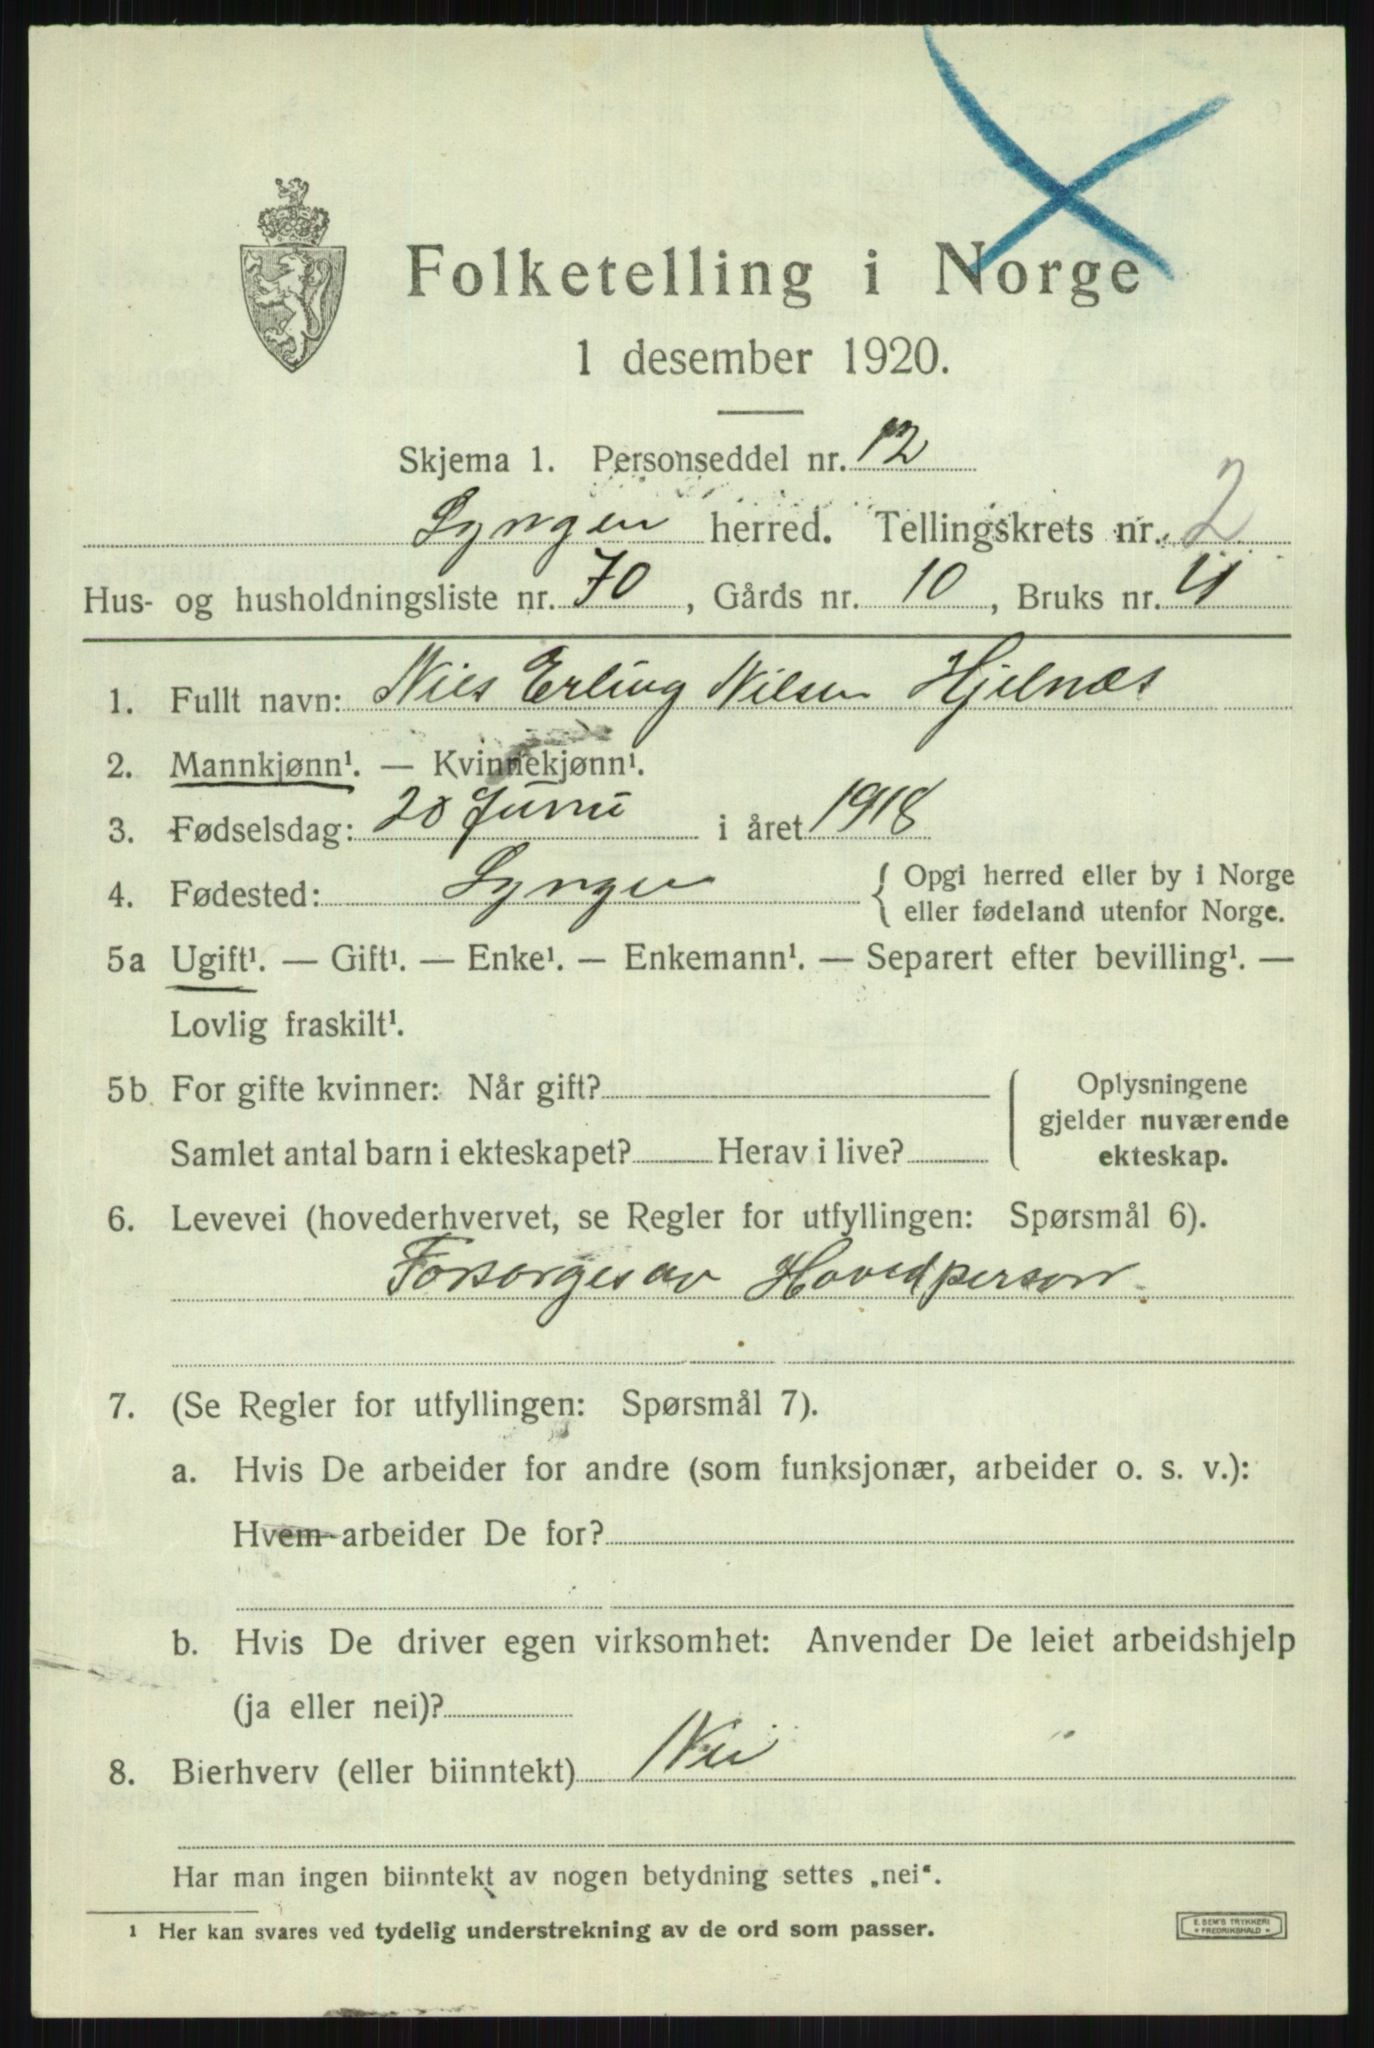 Folketelling i Norge
1 desember 1920.
Skjema 1. Personseddel nr. 12
Lyngen herred. Tellingskrets nr. 2
Hus- og husholdningsliste nr. 70, Gårds nr. 10, Bruks nr. 4
1. Fullt navn: Nils Erling Nilsen Hjelnæs
2. Mannkjønn¹. — Kvinnekjønn¹.
3. Fødselsdag: 28 Juni i året 1918
4. Fødested: Lyngen { Opgi herred eller by i Norge
eller fødeland utenfor Norge.
5a Ugift¹. — Gift¹. — Enke¹. — Enkemann¹. — Separert efter bevilling¹. —
Lovlig fraskilt¹.
5b. For gifte kvinner: Når gift?
Samlet antal barn i ekteskapet? Herav i live?
Oplysningene
gjelder nuværende
ekteskap.
6. Levevei (hovederhvervet, se Regler for utfyllingen: Spørsmål 6).
Forsørges av Hovedperson.
7. (Se Regler for utfyllingen: Spørsmål 7).
a. Hvis De arbeider for andre (som funksjonær, arbeider o. s. v.):
Hvem arbeider De for?
b. Hvis De driver egen virksomhet: Anvender De leiet arbeidshjelp
(ja eller nei)?
8. Bierhverv (eller biinntekt) Nei
Har man ingen biinntekt av nogen betydning settes „nei“.
¹ Her kan svares ved tydelig understrekning av de ord som passer.
E. SEM'S TRYKKERI
FREDRIKSHALD